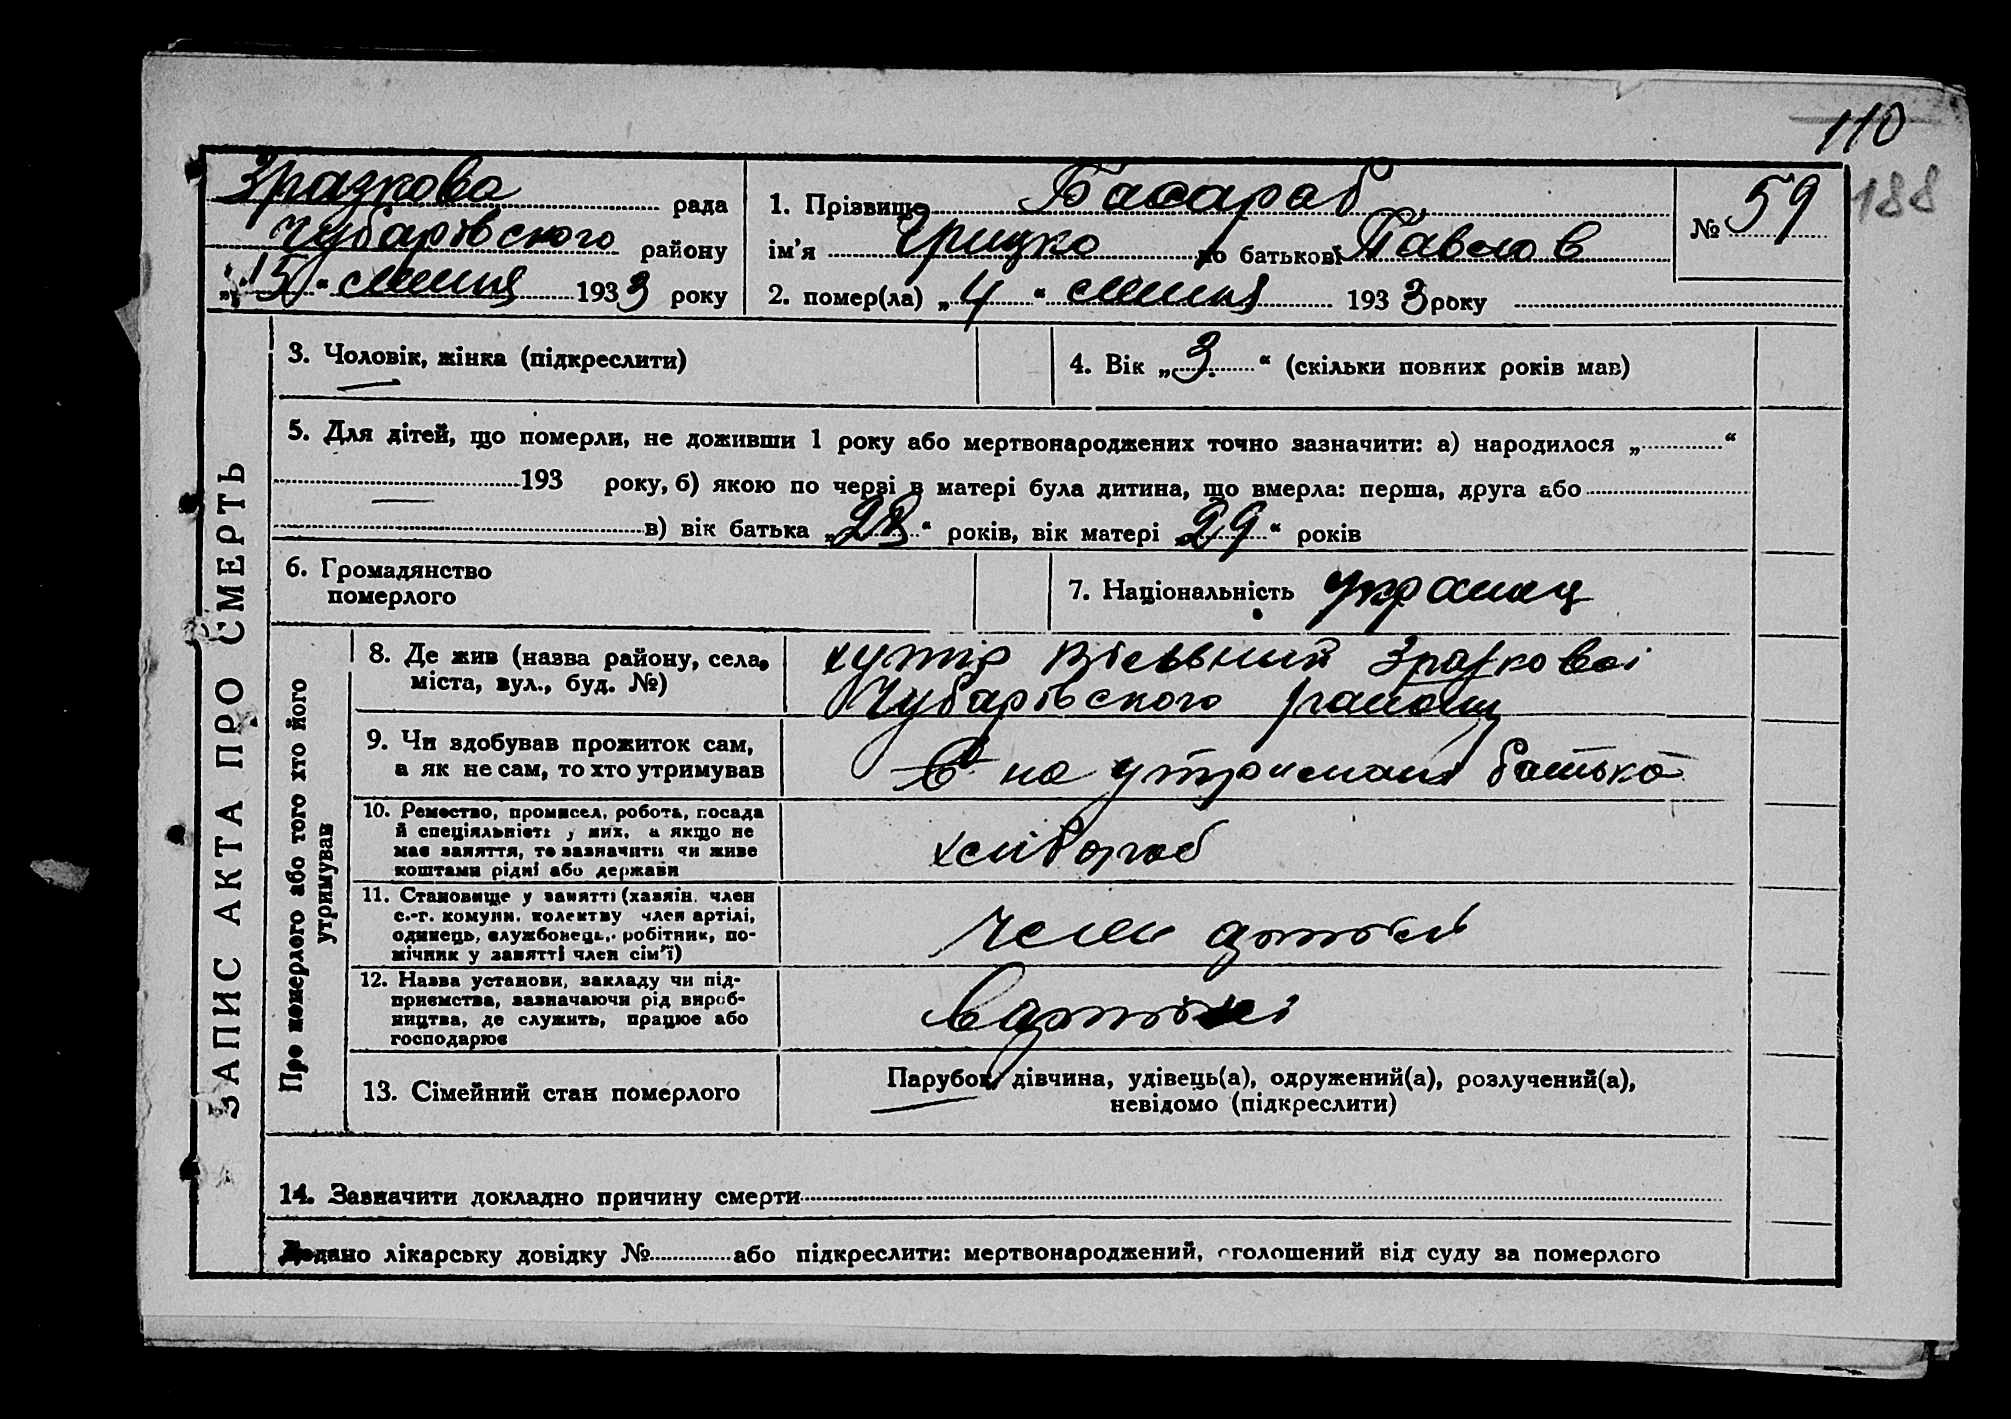 110
188
Зразкова рада
Чубарівского району
„15“ липня 1933 року
1. Прізвище Басараб
ім'я Грицко по батькові Павлов
№ 59
2. помер(ла) „4“ липня 1933 року
ЗАПИС АКТА ПРО СМЕРТЬ
3. Чоловік, жінка (підкреслити)
4. Вік „3“ (скільки повних років мав)
5. Для дітей, що померли, не доживши 1 року або мертвонароджених точно зазначити: а) народилося „ “
193 року, б) якою по черзі в матері була дитина, що вмерла: перша, друга або
в) вік батька „28“ років, вік матері „29“ років
6. Громадянство
померлого
7. Національність українец
Про померлого або того хто його
утримував
8. Де жив (назва району, села,
міста, вул., буд. №)
хутір Вільний Зразковоі
Чубарівского району
9. Чи здобував прожиток сам,
а як не сам, то хто утримував
на утримані батька
10. Ремество, промисел, робота, посада
й спеціяльність у них, а якщо не
має заняття, то зазначити чи живе
коштами рідні або держави
хлібороб
11. Становище у занятті (хазяїн, член
с.-г. комуни, колективу член артілі,
одинець, службовець, робітник, по-
мічник у занятті член сім'ї)
член артілі
12. Назва установи, закладу чи під-
приємства, зазначаючи рід вироб-
ництва, де служить, працює або
господарює
в артілі
13. Сімейний стан померлого
Парубок, дівчина, удівець(а), одружений(а), розлучений(а),
невідомо (підкреслити)
14. Зазначити докладно причину смерти
Додано лікарську довідку № або підкреслити: мертвонароджений, оголошений від суду за померлого